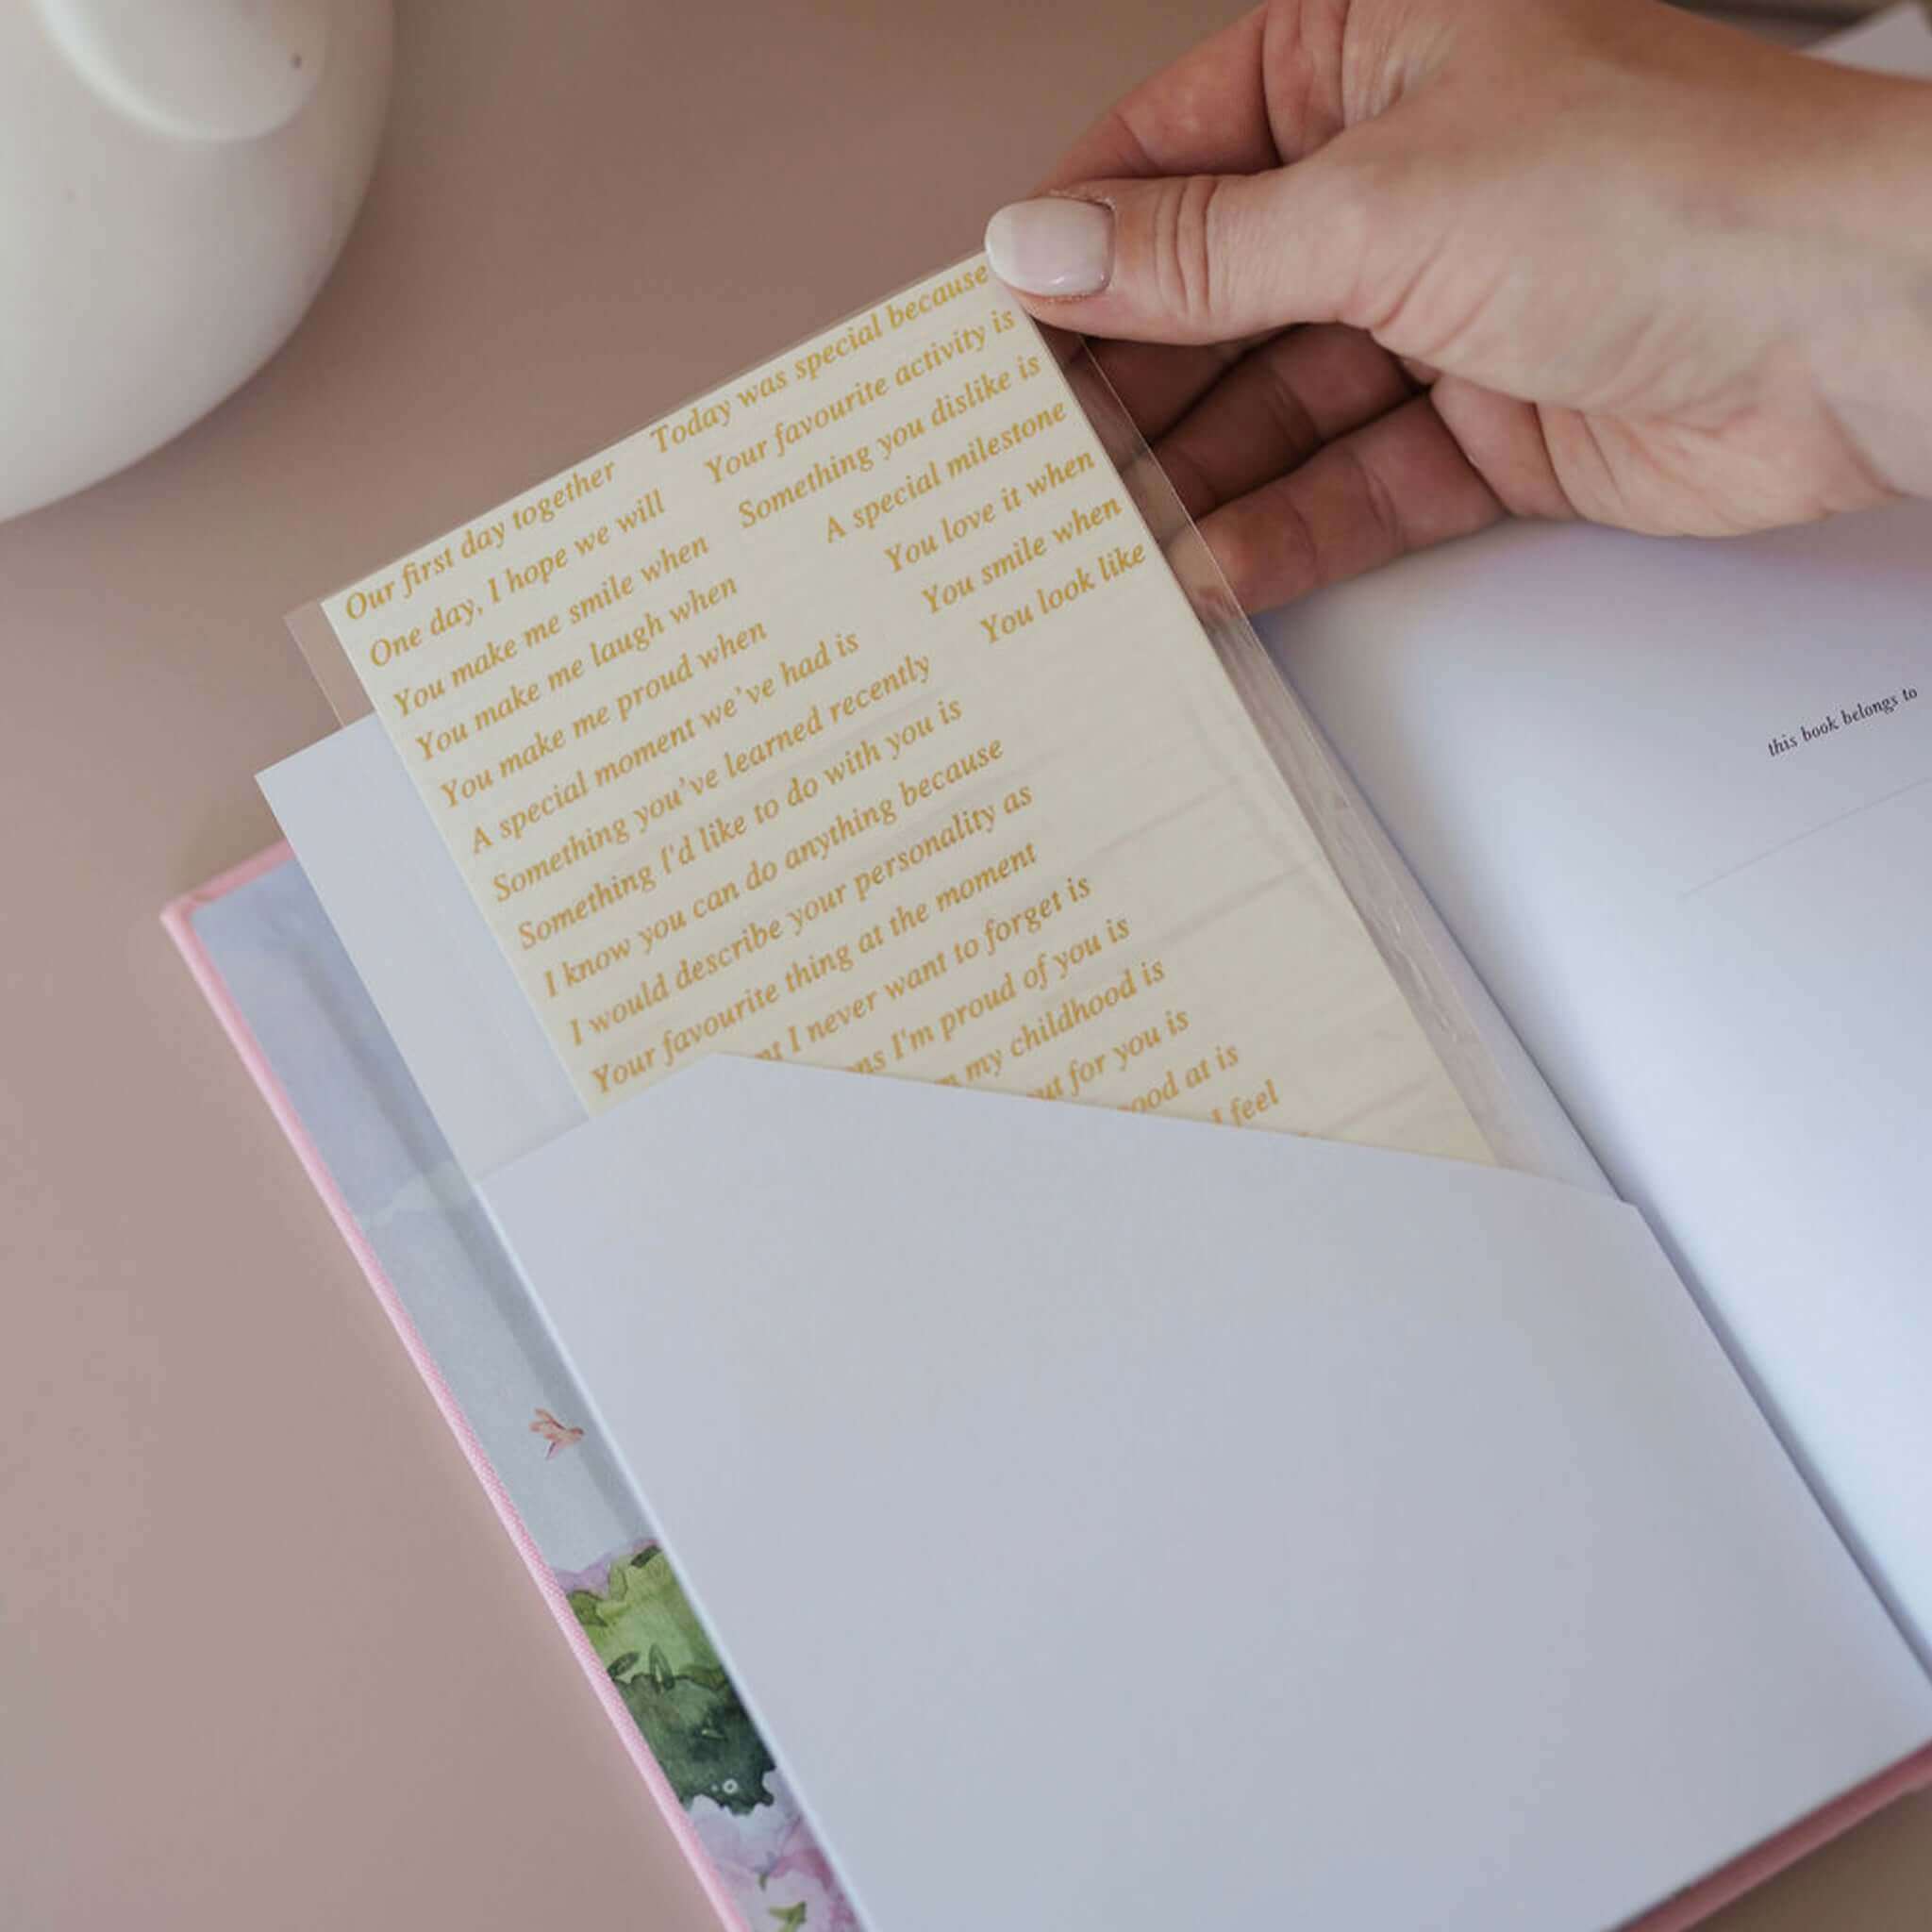 Our first day together
One day, I hope we will
You make me smile when
You make me laugh when
You make me proud when
A special moment we've had is
Something you've learned recently
Something I'd like to do with you is
I know you can do anything because
I would describe your personality as
Your favourite thing at the moment
I never want to forget is
I'm proud of you is
my childhood is
for you is
at is
I feel
Today was special because
Your favourite activity is
Something you dislike is
A special milestone
You love it when
You smile when
You look like
this book belongs to